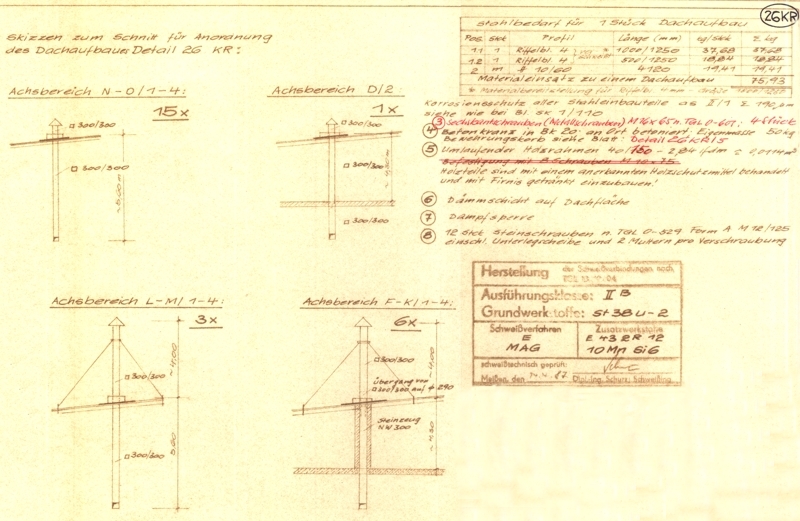 26KR
Skizzen zum Schnitt für Anordnung
des Dachaufbaues Detail 26 KR:
Stahlbedarf für 1 Stück Dachaufbau
Pos. Stck Profil Länge (mm) kg/Stck Σ kg
1.1 1 Riffelbl. 4 * 1000/1250 37,68 37,68
1.2 1 Riffelbl. 4 500/1250 18,84 18,84
2 m ∮ 10/60 4120 19,41 19,41
Materialeinsatz zu einem Dachaufbau 75,93
* Materialbereitstellung für Riffelbl. 4mm
Korrosionsschutz aller Stahleinbauteile as II/1 Σ 190 µm
siehe wie bei Bl. sk 1/110
3 Sechskantschrauben (Metallschrauben) M 16x65 n. TGL 0-601: 4 Stück
4 Betonkranz in Bk 20: an Ort betoniert: Eigenmasse 50 kg
Bewehrungskorb siehe Blatt: Detail 26 KR/5
5 Umlaufender Holzrahmen 40/150 - 2,84 lfdm ≙ 0,017m³
Befestigung mit 8 Schrauben M 10 x 75
Holzteile sind mit einem anerkannten Holzschutzmittel behandelt
und mit Firnis getränkt einzubauen!
6 Dämmschicht auf Dachfläche
7 Dampfsperre
8 12 Stck Steinschrauben n. TGL 0-529 Form A M 12/125
einschl. Unterlegscheibe und 2 Muttern pro Verschraubung
Achsbereich N-O/1-4:
15x
□ 300/300
□ 300/300
Achsbereich D/2:
1x
□ 300/300
□ 300/300
□ 300/300
Achsbereich L-M/1-4:
3x
□ 300/300
~4,00
□ 300/300
Achsbereich F-K/1-4:
6x
□ 300/300
~4,00
Übergang von
□ 300/300 auf ∮ 290
Steinzeug
NW 300
Herstellung der Schweißverbindungen nach
Ausführungsklasse: II B
Grundwerkstoffe: St 38 u-2
Schweißverfahren
E
MAG
Zusatzwerkstoffe
E 43 2R 12
10 Mn Si 6
schweißtechnisch geprüft:
Meißen, den 14.4.87